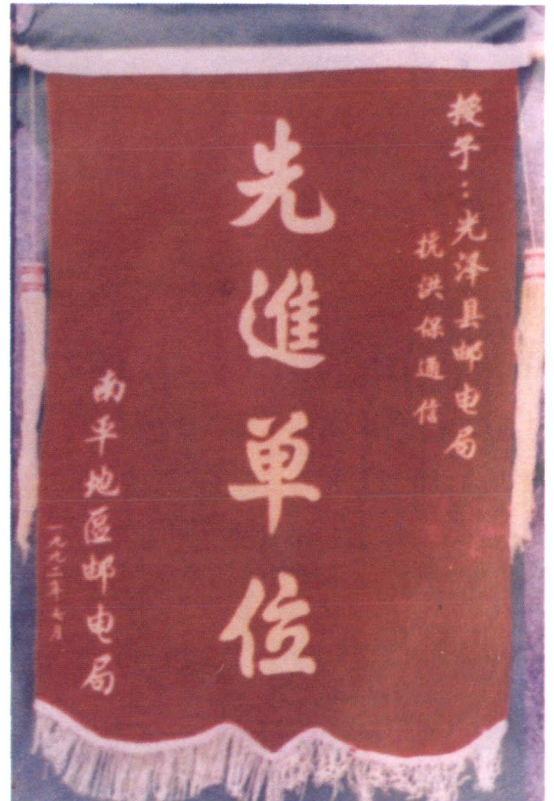 授予：光泽县邮电局
抗洪保通信
先進单位
南平地區邮电局
一九九二年七月